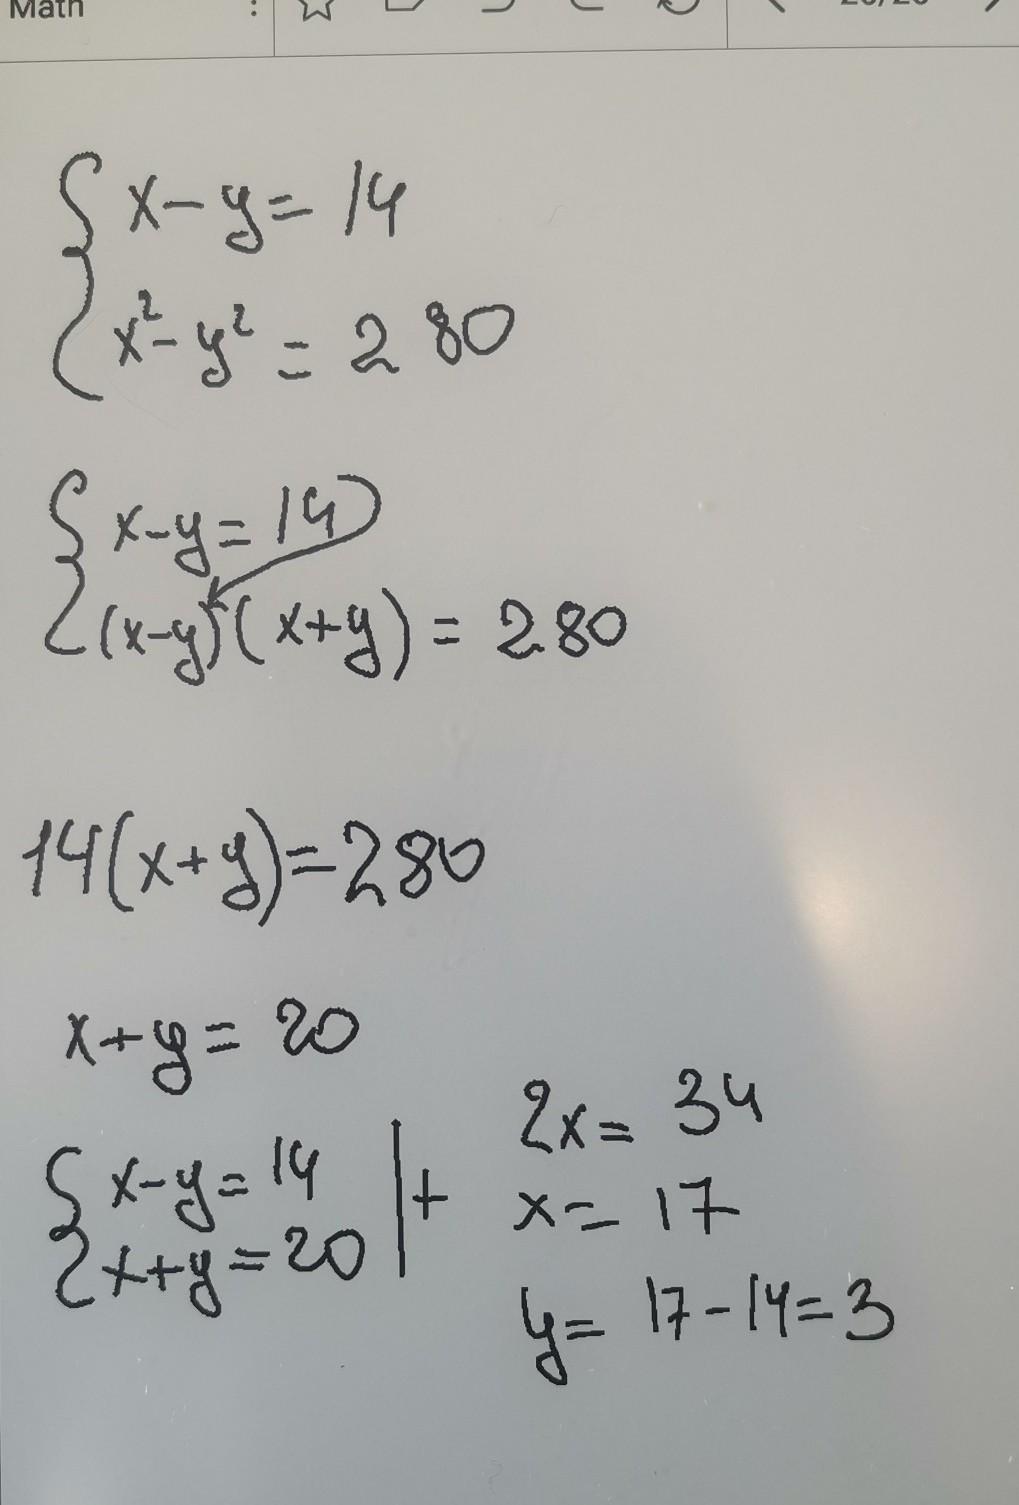 Math
x - y = 14
x² - y² = 280
x - y = 14
(x - y)(x + y) = 280
14(x + y) = 280
x + y = 20
x - y = 14
x + y = 20
+
2x = 34
x = 17
y = 17 - 14 = 3